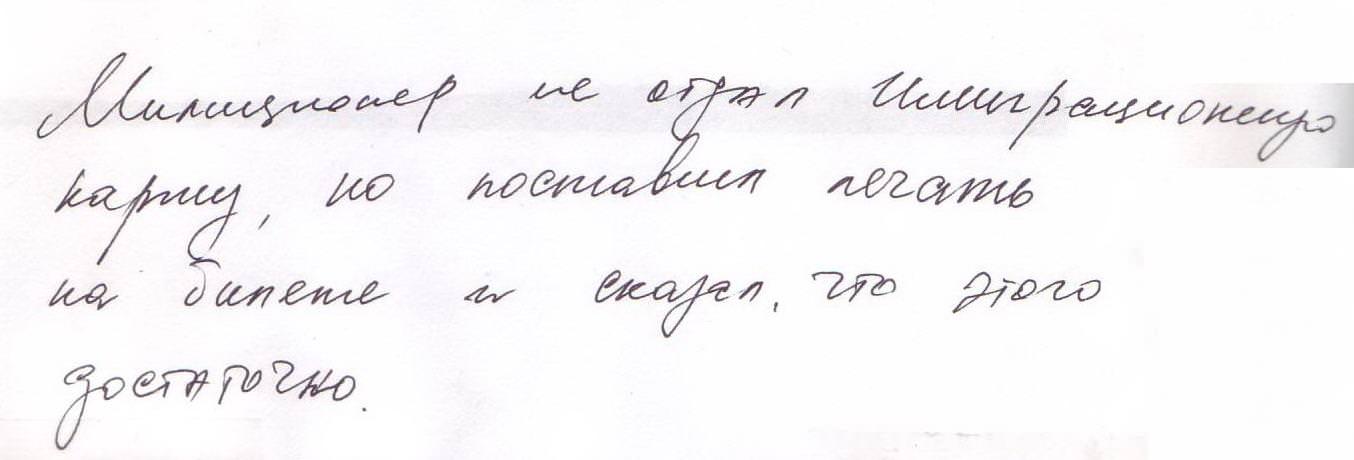 Милиционер не отдал Имиграционную
карту, но поставил печать
на билете и сказал, что этого
достаточно.